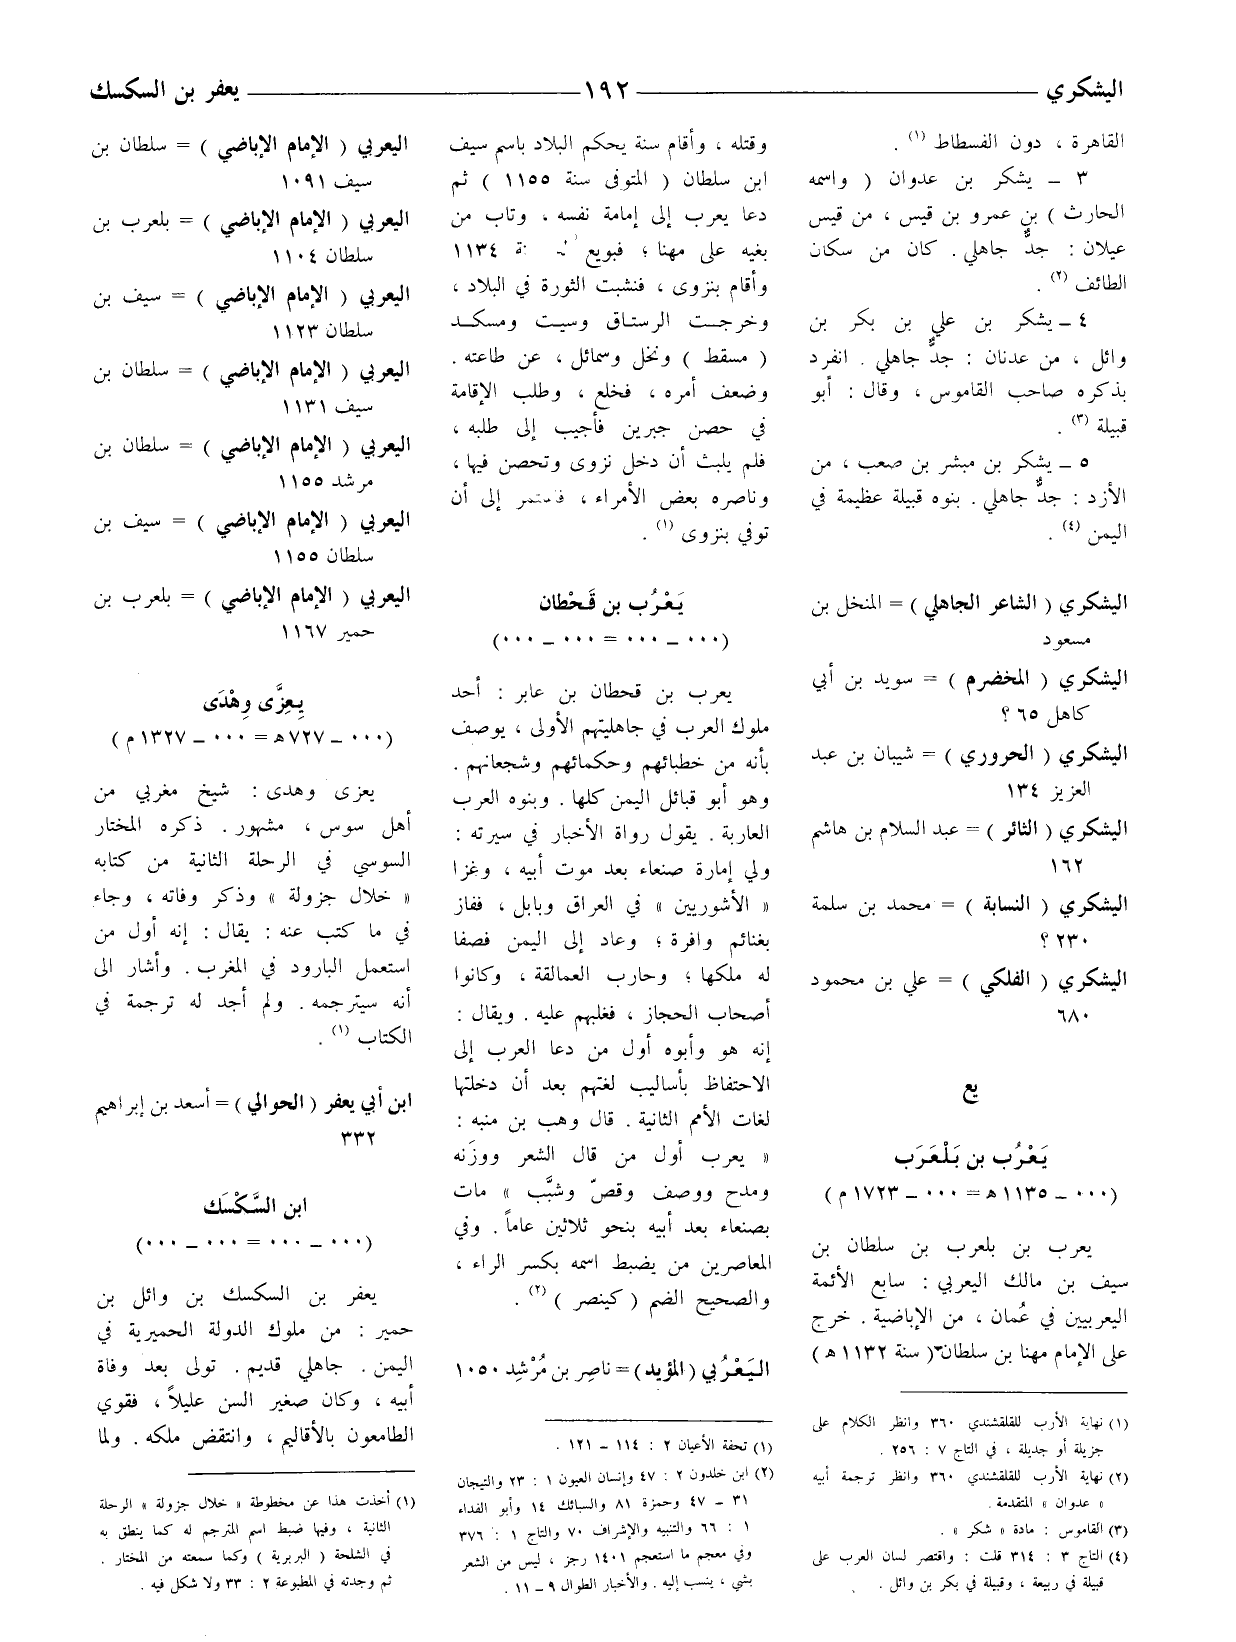 اليشكري ١٩٢ يعفر بن السكسك
القاهرة ، دون الفسطاط (١) .
٣ ــ يشكر بن عدوان ( واسمه
الحارث ) بن عمرو بن قيس ، من قيس
عيلان : جدٌّ جاهلي . كان من سكان
الطائف (٢) .
٤ ــ يشكر بن علي بن بكر بن
وائل ، من عدنان : جدٌّ جاهلي . انفرد
بذكره صاحب القاموس ، وقال : أبو
قبيلة (٣) .
٥ ــ يشكر بن مبشر بن صعب ، من
الأزد : جدٌّ جاهلي . بنوه قبيلة عظيمة في
اليمن (٤) .
اليشكري ( الشاعر الجاهلي ) = المنخل بن
مسعود
اليشكري ( المخضرم ) = سويد بن أبي
كاهل ٦٥ ؟
اليشكري ( الحروري ) = شيبان بن عبد
العزيز ١٣٤
اليشكري ( الثائر ) = عبد السلام بن هاشم
١٦٢
اليشكري ( النسابة ) = محمد بن سلمة
٢٣٠ ؟
اليشكري ( الفلكي ) = علي بن محمود
٦٨٠
يع
يَعْرُب بن بَلْعَرَب
(٠٠٠ ــ ١١٣٥ هـ = ٠٠٠ ــ ١٧٢٣ م )
يعرب بن بلعرب بن سلطان بن
سيف بن مالك اليعربي : سابع الأئمة
اليعربيين في عُمان ، من الإباضية . خرج
على الإمام مهنا بن سلطان ( سنة ١١٣٢ هـ )
(١) نهاية الأرب للقلقشندي ٣٦٠ وانظر الكلام على
جزيلة أو جديلة ، في التاج ٧ : ٢٥٦ .
(٢) نهاية الأرب للقلقشندي ٣٦٠ وانظر ترجمة أبيه
« عدوان » المتقدمة .
(٣) القاموس : مادة « شكر » .
(٤) التاج ٣ : ٣١٤ قلت : واقتصر لسان العرب على
قبيلة في ربيعة ، وقبيلة في بكر بن وائل .
وقتله ، وأقام سنة يحكم البلاد باسم سيف
ابن سلطان ( المتوفى سنة ١١٥٥ ) ثم
دعا يعرب إلى إمامة نفسه ، وتاب من
بغيه على مهنا ؛ فبويع ١١٣٤
وأقام بنزوى ، فنشبت الثورة في البلاد ،
وخرجت الرستاق وسيت ومسكد
( مسقط ) ونخل وسمائل ، عن طاعته .
وضعف أمره ، فخلع ، وطلب الإقامة
في حصن جبرين فأجيب إلى طلبه ،
فلم يلبث أن دخل نزوى وتحصن فيها ،
وناصره بعض الأمراء ، فاستمر إلى أن
توفي بنزوى (١) .
يَعْرُب بن قَحْطان
(٠٠٠ ــ ٠٠٠ = ٠٠٠ ــ ٠٠٠)
يعرب بن قحطان بن عابر : أحد
ملوك العرب في جاهليتهم الأولى ، يوصف
بأنه من خطبائهم وحكمائهم وشجعانهم .
وهو أبو قبائل اليمن كلها . وبنوه العرب
العاربة . يقول رواة الأخبار في سيرته :
ولي إمارة صنعاء بعد موت أبيه ، وغزا
« الأشوريين » في العراق وبابل ، ففاز
بغنائم وافرة ؛ وعاد إلى اليمن فصفا
له ملكها ؛ وحارب العمالقة ، وكانوا
أصحاب الحجاز ، فغلبهم عليه . ويقال :
إنه هو وأبوه أول من دعا العرب إلى
الاحتفاظ بأساليب لغتهم بعد أن دخلتها
لغات الأمم الثانية . قال وهب بن منبه :
« يعرب أول من قال الشعر ووزَنه
ومدح ووصف وقصّ وشبَّب » مات
بصنعاء بعد أبيه بنحو ثلاثين عاماً . وفي
المعاصرين من يضبط اسمه بكسر الراء ،
والصحيح الضم ( كينصر ) (٢) .
اليَعْرُبي (المؤيد) = ناصِر بن مُرْشِد ١٠٥٠
(١) تحفة الأعيان ٢ : ١١٤ ــ ١٢١ .
(٢) ابن خلدون ٢ : ٤٧ وإنسان العيون ١ : ٢٣ والتيجان
٣١ ــ ٤٧ وحمزة ٨١ والسبائك ١٤ وأبو الفداء
١ : ٦٦ والتنبيه والإشراف ٧٠ والتاج ١ : ٣٧٦
وفي معجم ما استعجم ١٤٠١ رجز ، ليس من الشعر
بشي ، ينسب إليه . والأخبار الطوال ٩ ــ ١١ .
اليعربي ( الإمام الإباضي ) = سلطان بن
سيف ١٠٩١
اليعربي ( الإمام الإباضي ) = بلعرب بن
سلطان ١١٠٤
اليعربي ( الإمام الإباضي ) = سيف بن
سلطان ١١٢٣
اليعربي ( الإمام الإباضي ) = سلطان بن
سيف ١١٣١
اليعربي ( الإمام الإباضي ) = سلطان بن
مرشد ١١٥٥
اليعربي ( الإمام الإباضي ) = سيف بن
سلطان ١١٥٥
اليعربي ( الإمام الإباضي ) = بلعرب بن
حمير ١١٦٧
يِعِزَّى وِهْدَى
(٠٠٠ ــ ٧٢٧ هـ = ٠٠٠ ــ ١٣٢٧ م )
يعزى وهدى : شيخ مغربي من
أهل سوس ، مشهور . ذكره المختار
السوسي في الرحلة الثانية من كتابه
« خلال جزولة » وذكر وفاته ، وجاء
في ما كتب عنه : يقال : إنه أول من
استعمل البارود في المغرب . وأشار الى
أنه سيترجمه . ولم أجد له ترجمة في
الكتاب (١) .
ابن أبي يعفر ( الحوالي ) = أسعد بن إبراهيم
٣٣٢
ابن السَّكْسَك
(٠٠٠ ــ ٠٠٠ = ٠٠٠ ــ ٠٠٠)
يعفر بن السكسك بن وائل بن
حمير : من ملوك الدولة الحميرية في
اليمن . جاهلي قديم . تولى بعد وفاة
أبيه ، وكان صغير السن عليلاً ، فقوي
الطامعون بالأقاليم ، وانتقض ملكه . ولما
(١) أخذت هذا عن مخطوطة « خلال جزولة » الرحلة
الثانية ، وفيها ضبط اسم المترجم له كما ينطق به
في الشلحة ( البربرية ) وكما سمعته من المختار .
ثم وجدته في المطبوعة ٢ : ٣٣ ولا شكل فيه .